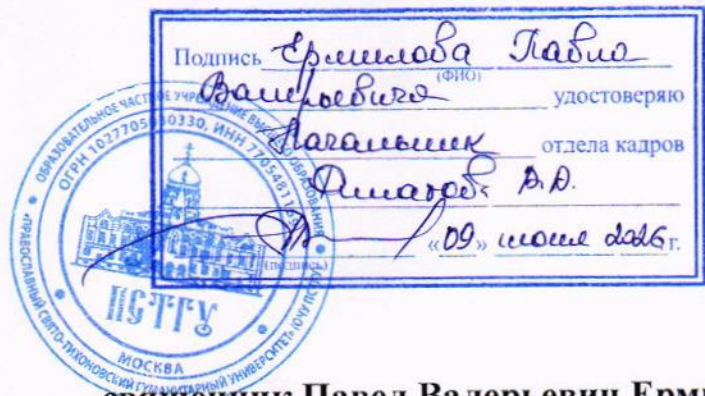 Подпись Ермилова Павла
(ФИО)
Валерьевича удостоверяю
Начальник отдела кадров
В.Д.
«09» июня 2026 г.
(подпись)
ОБРАЗОВАТЕЛЬНОЕ ЧАСТНОЕ УЧРЕЖДЕНИЕ ВЫСШЕГО ОБРАЗОВАНИЯ
«ПРАВОСЛАВНЫЙ СВЯТО-ТИХОНОВСКИЙ ГУМАНИТАРНЫЙ УНИВЕРСИТЕТ» (ОЧУ ПСТГУ)
ОГРН ИНН
ПСТГУ
МОСКВА
священник Павел Валерьевич